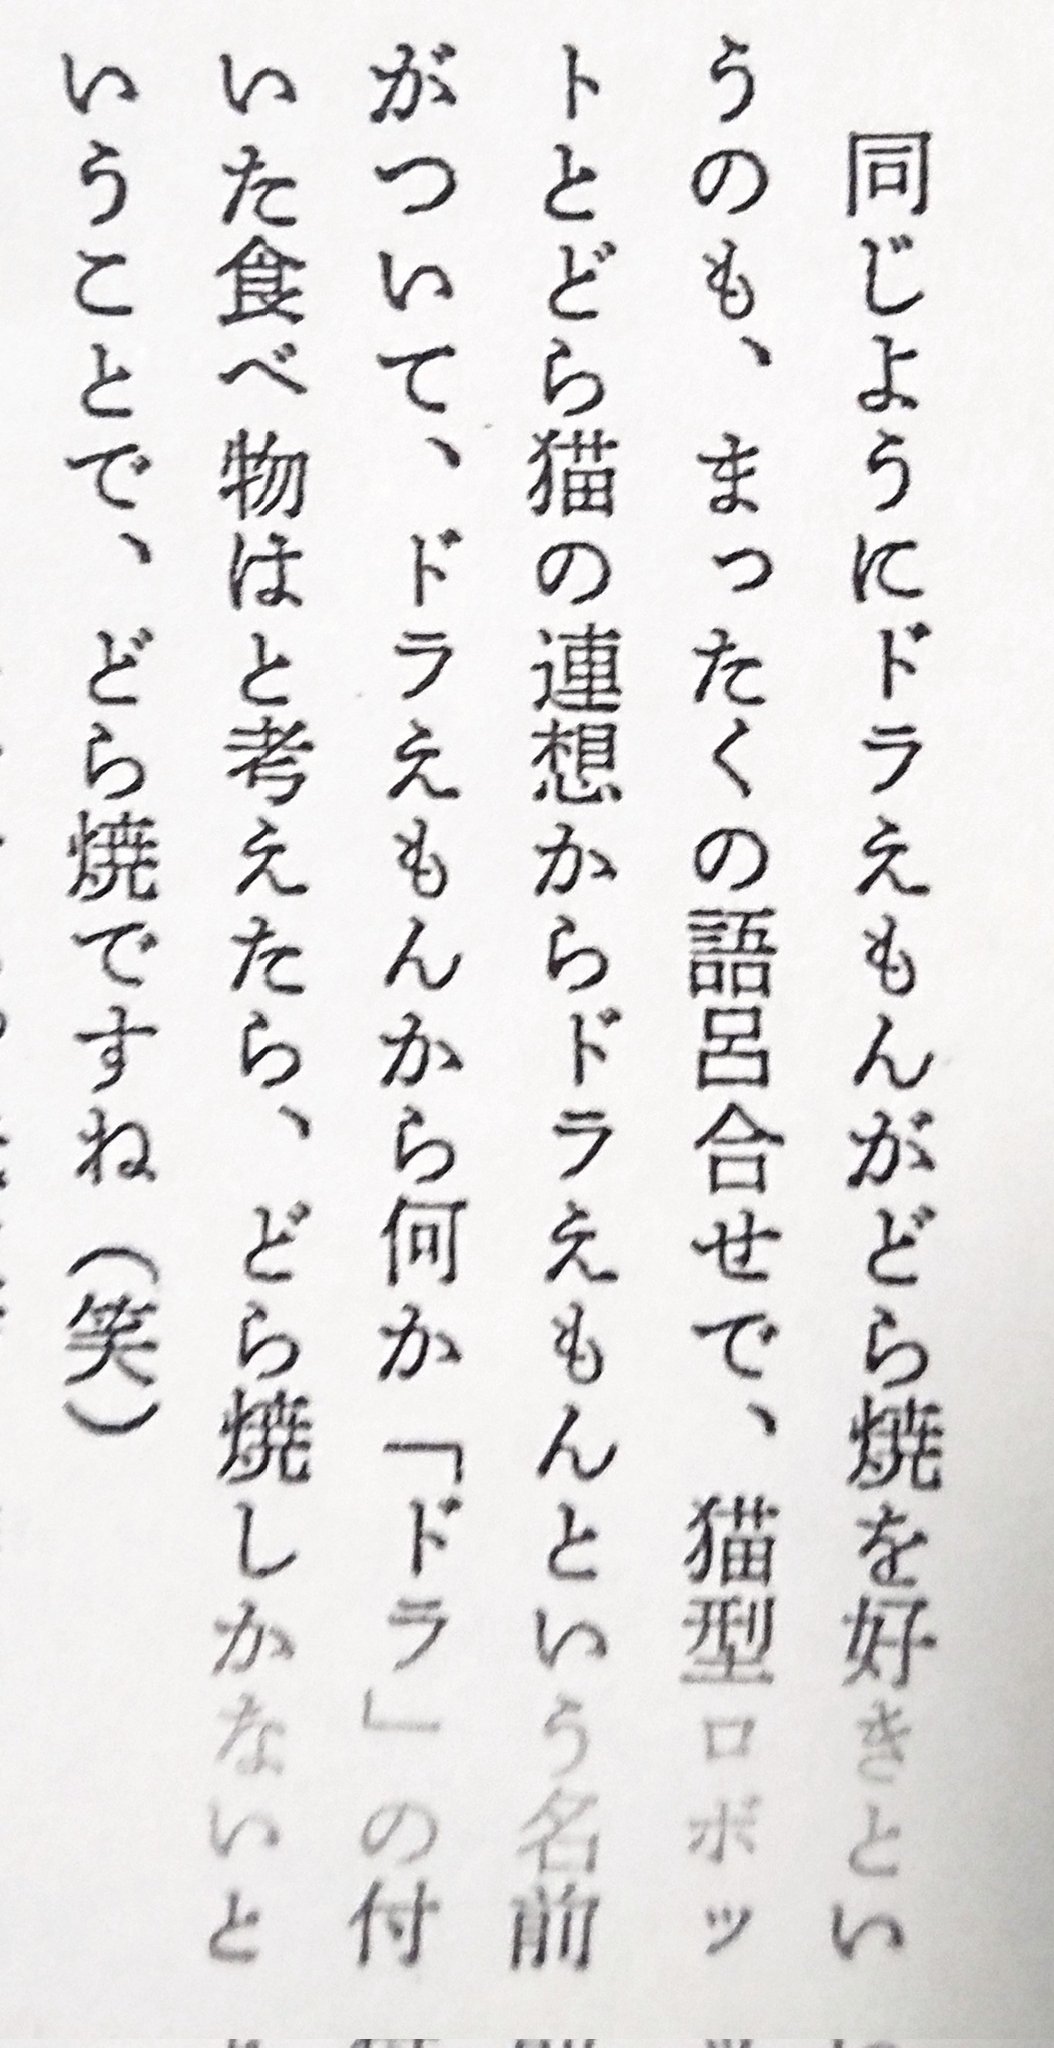 同じようにドラえもんがどら焼を好きとい
うのも、まったくの語呂合せで、猫型ロボッ
トとどら猫の連想からドラえもんという名前
がついて、ドラえもんから何か「ドラ」の付
いた食べ物はと考えたら、どら焼しかないと
いうことで、どら焼ですね（笑）